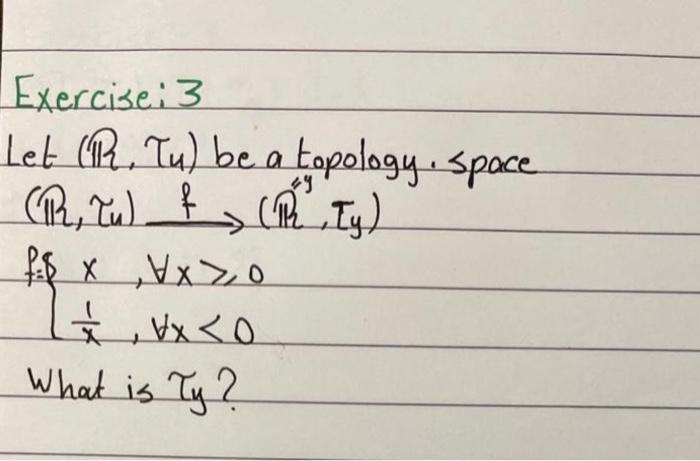 Exercise: 3
Let (ℝ, τu) be a topology. space
(ℝ, τu) f→ (ℝ"y", τy)
f={ x , ∀x ≥ 0
1/x , ∀x < 0
What is τy?